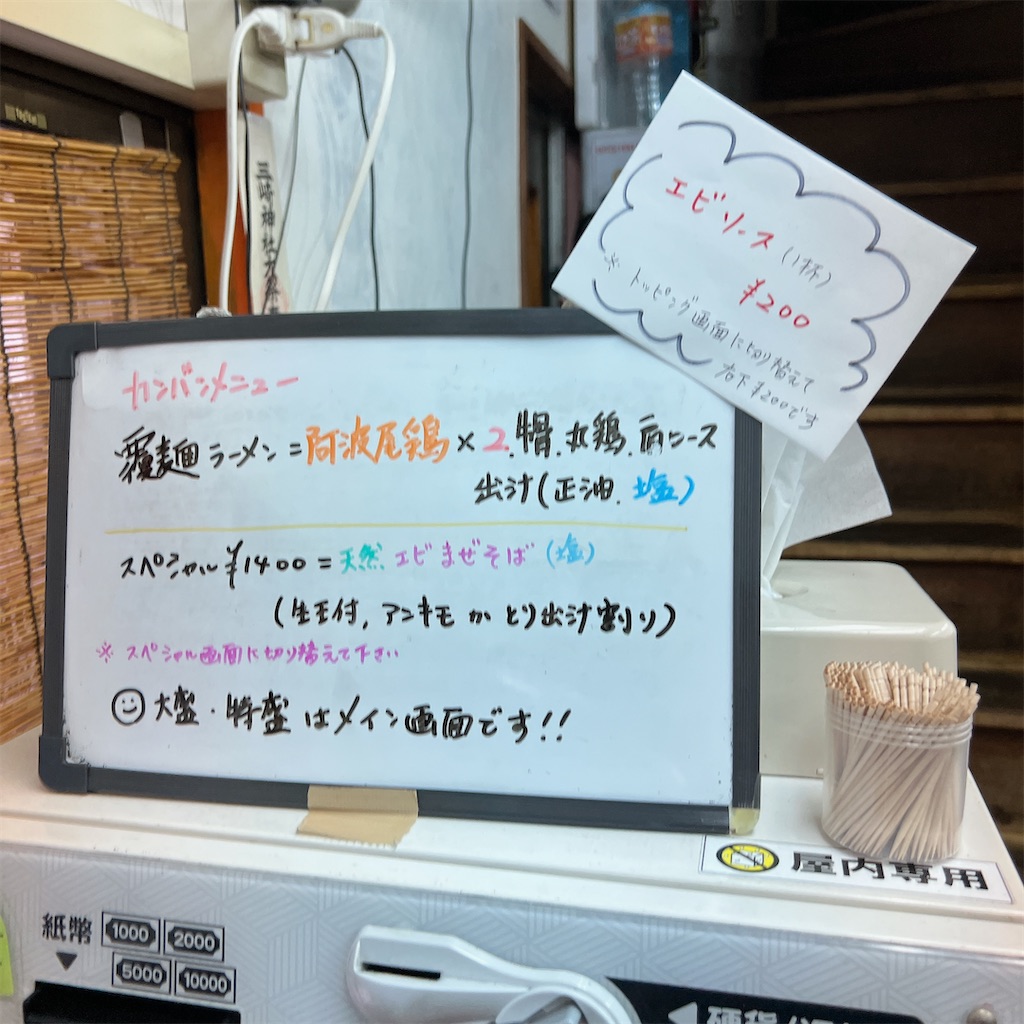 エビソース(1杯)
¥200
※トッピング画面に切り替えて
右下¥200です
三崎神社
カンバンメニュー
覆麺ラーメン=阿波尾鶏×2.牛骨.丸鶏.肩ロース
出汁(正油.塩)
スペシャル¥1400=天然エビまぜそば(塩)
(生玉付,アンキモかとり出汁割り)
※スペシャル画面に切り替えて下さい
大盛・特盛はメイン画面です!!
屋内専用
紙幣
1000 2000
5000 10000
硬貨